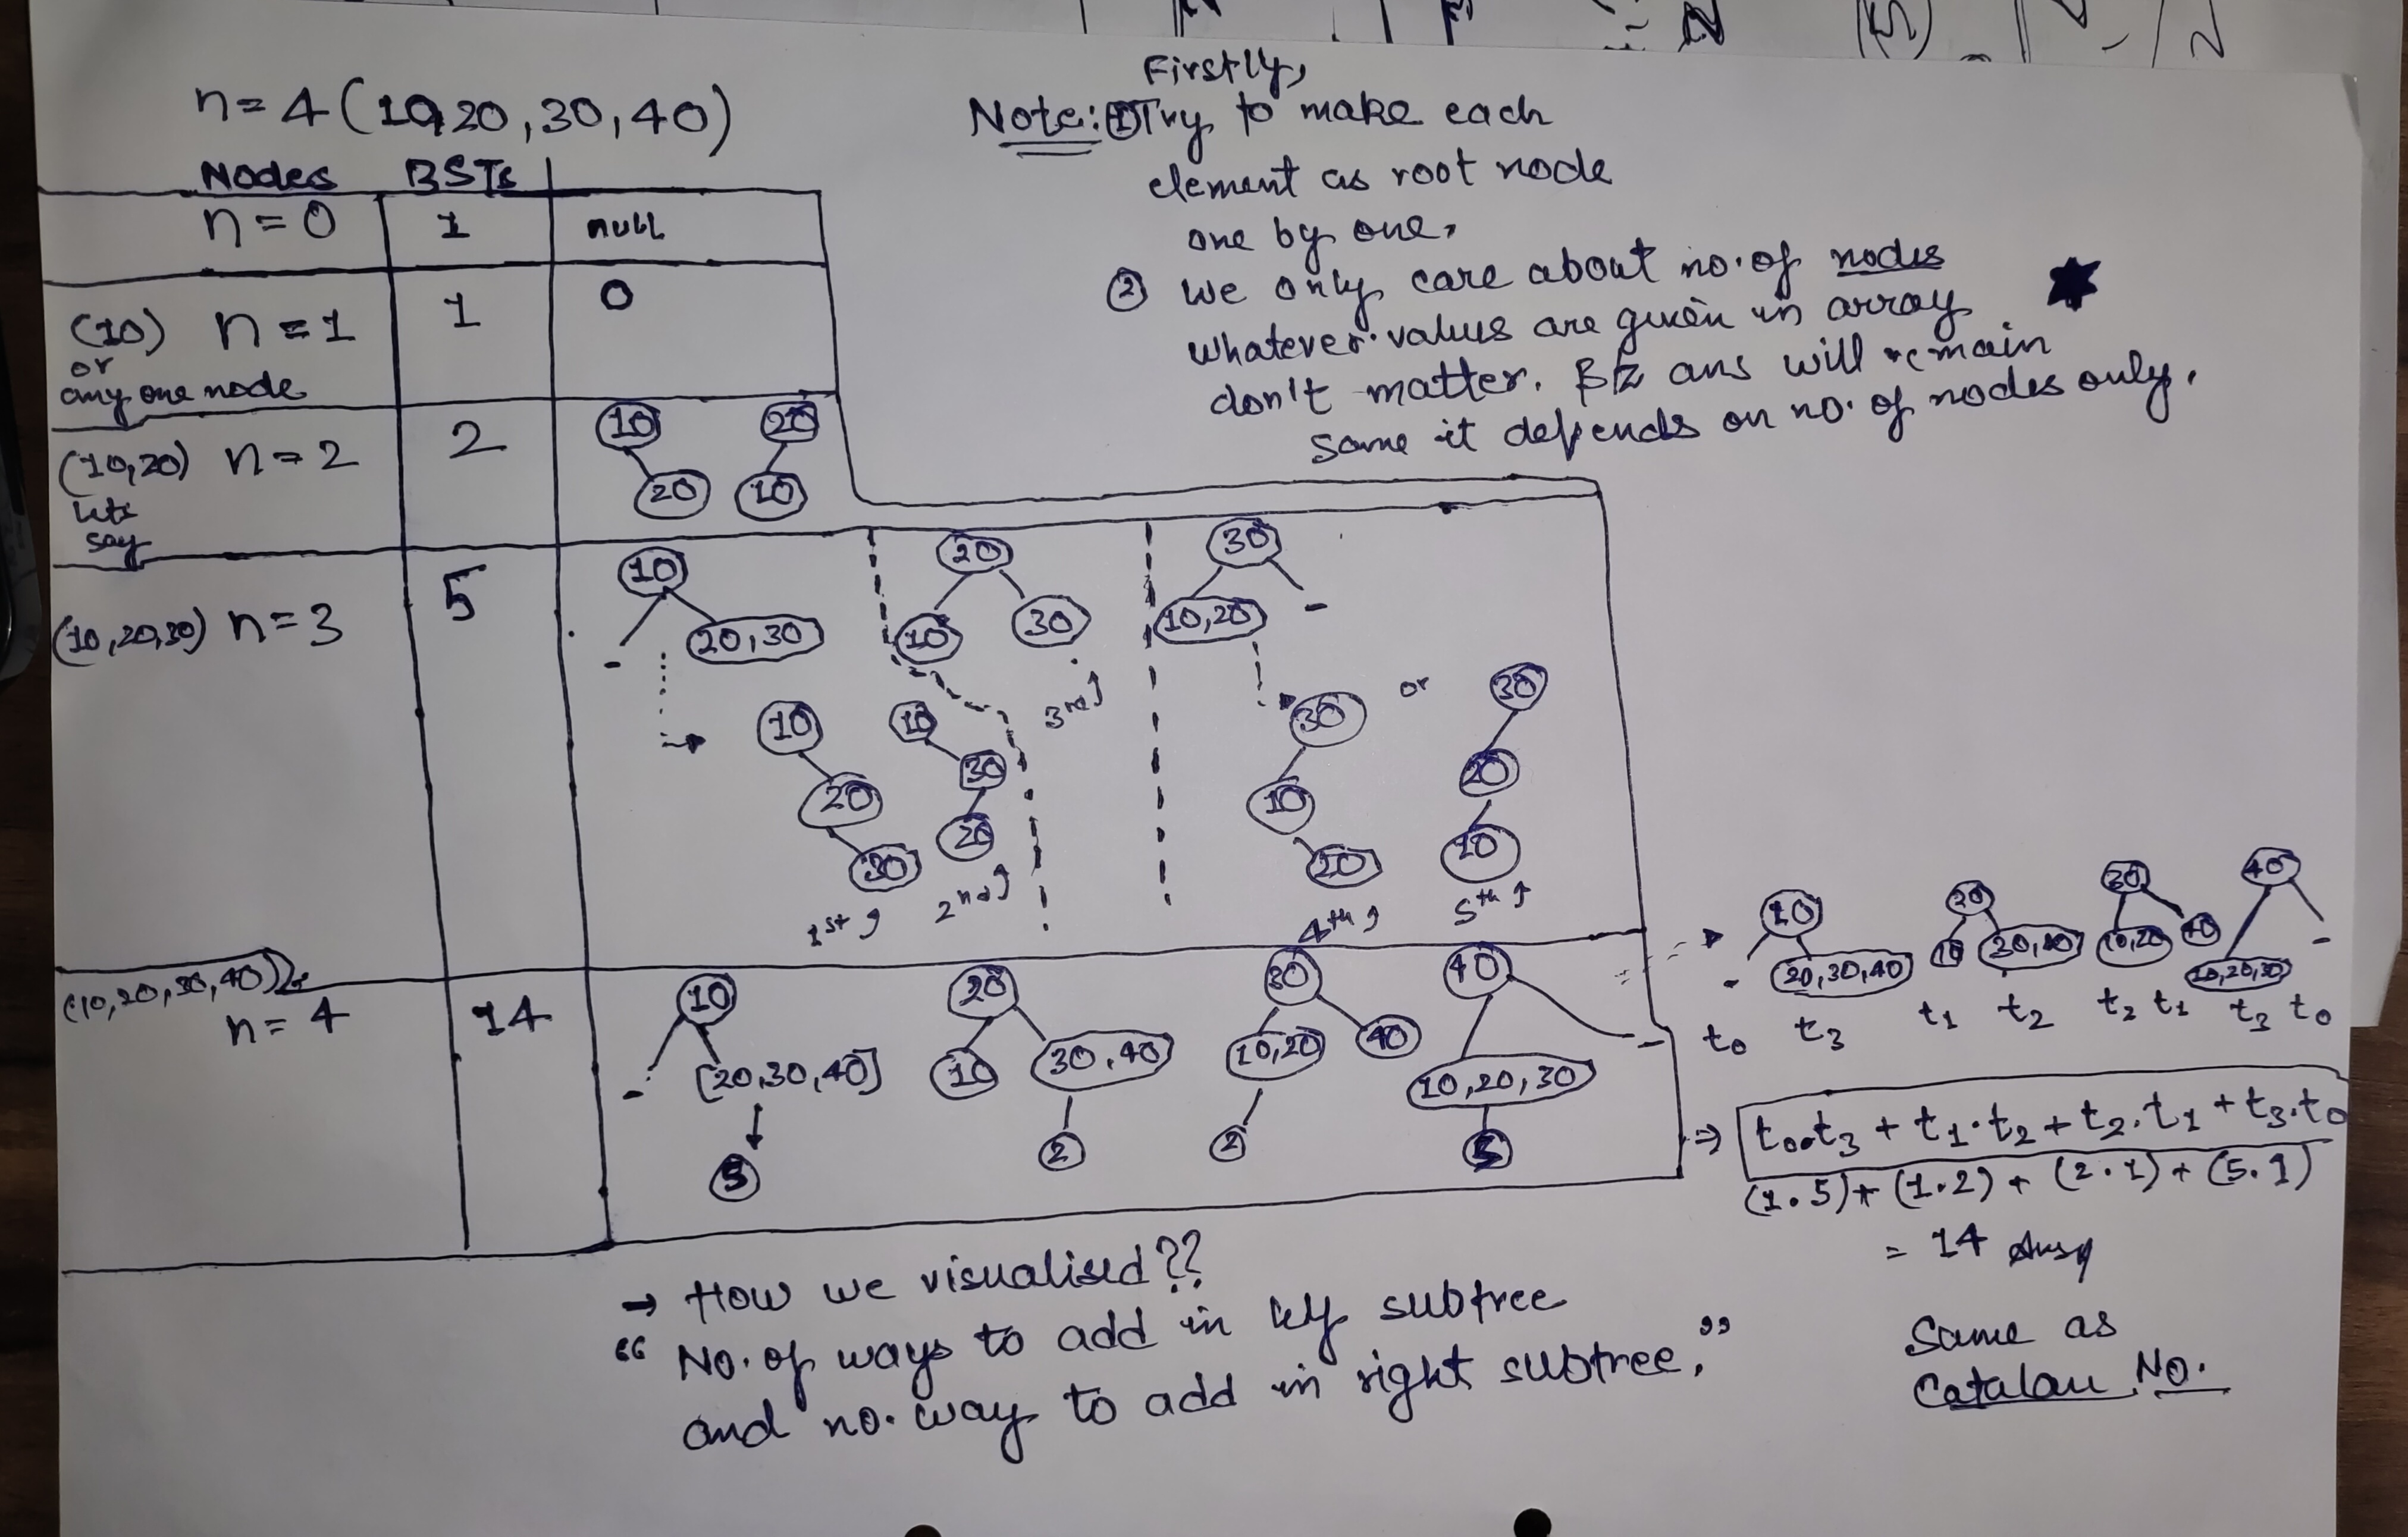 n=4(10,20,30,40)
Firstly,
Note: ① Try to make each
element as root node
one by one.
② we only care about no. of nodes
whatever values are given in array
don't matter. Bz ans will remain
same it depends on no. of nodes only.
Nodes BSTs
n=0 1 null
(10) n=1 1 0
or
any one node
(10,20) n=2 2 10 20
lets 20 10
say
(10,20,30) n=3 5
10 20 30
- 20,30 10 30 10,20 -
3rd
10 10 30 or 30
20 30 10 20
30 20 20 10
1st 2nd 4th 5th
(10,20,30,40)
n=4 14
10 20 30 40
- [20,30,40] 10 30,40 10,20 40 10,20,30 -
5 2 2 5
10 20 30 40
- 20,30,40 10 20,40 10,20 40 10,20,30 -
t0 t3 t1 t2 t2 t1 t3 t0
⇒ t0.t3 + t1.t2 + t2.t1 + t3.t0
(1.5)+(1.2)+(2.1)+(5.1)
= 14 Ans
Same as
Catalan No.
→ How we visualised??
"No. of ways to add in left subtree
and no. way to add in right subtree."